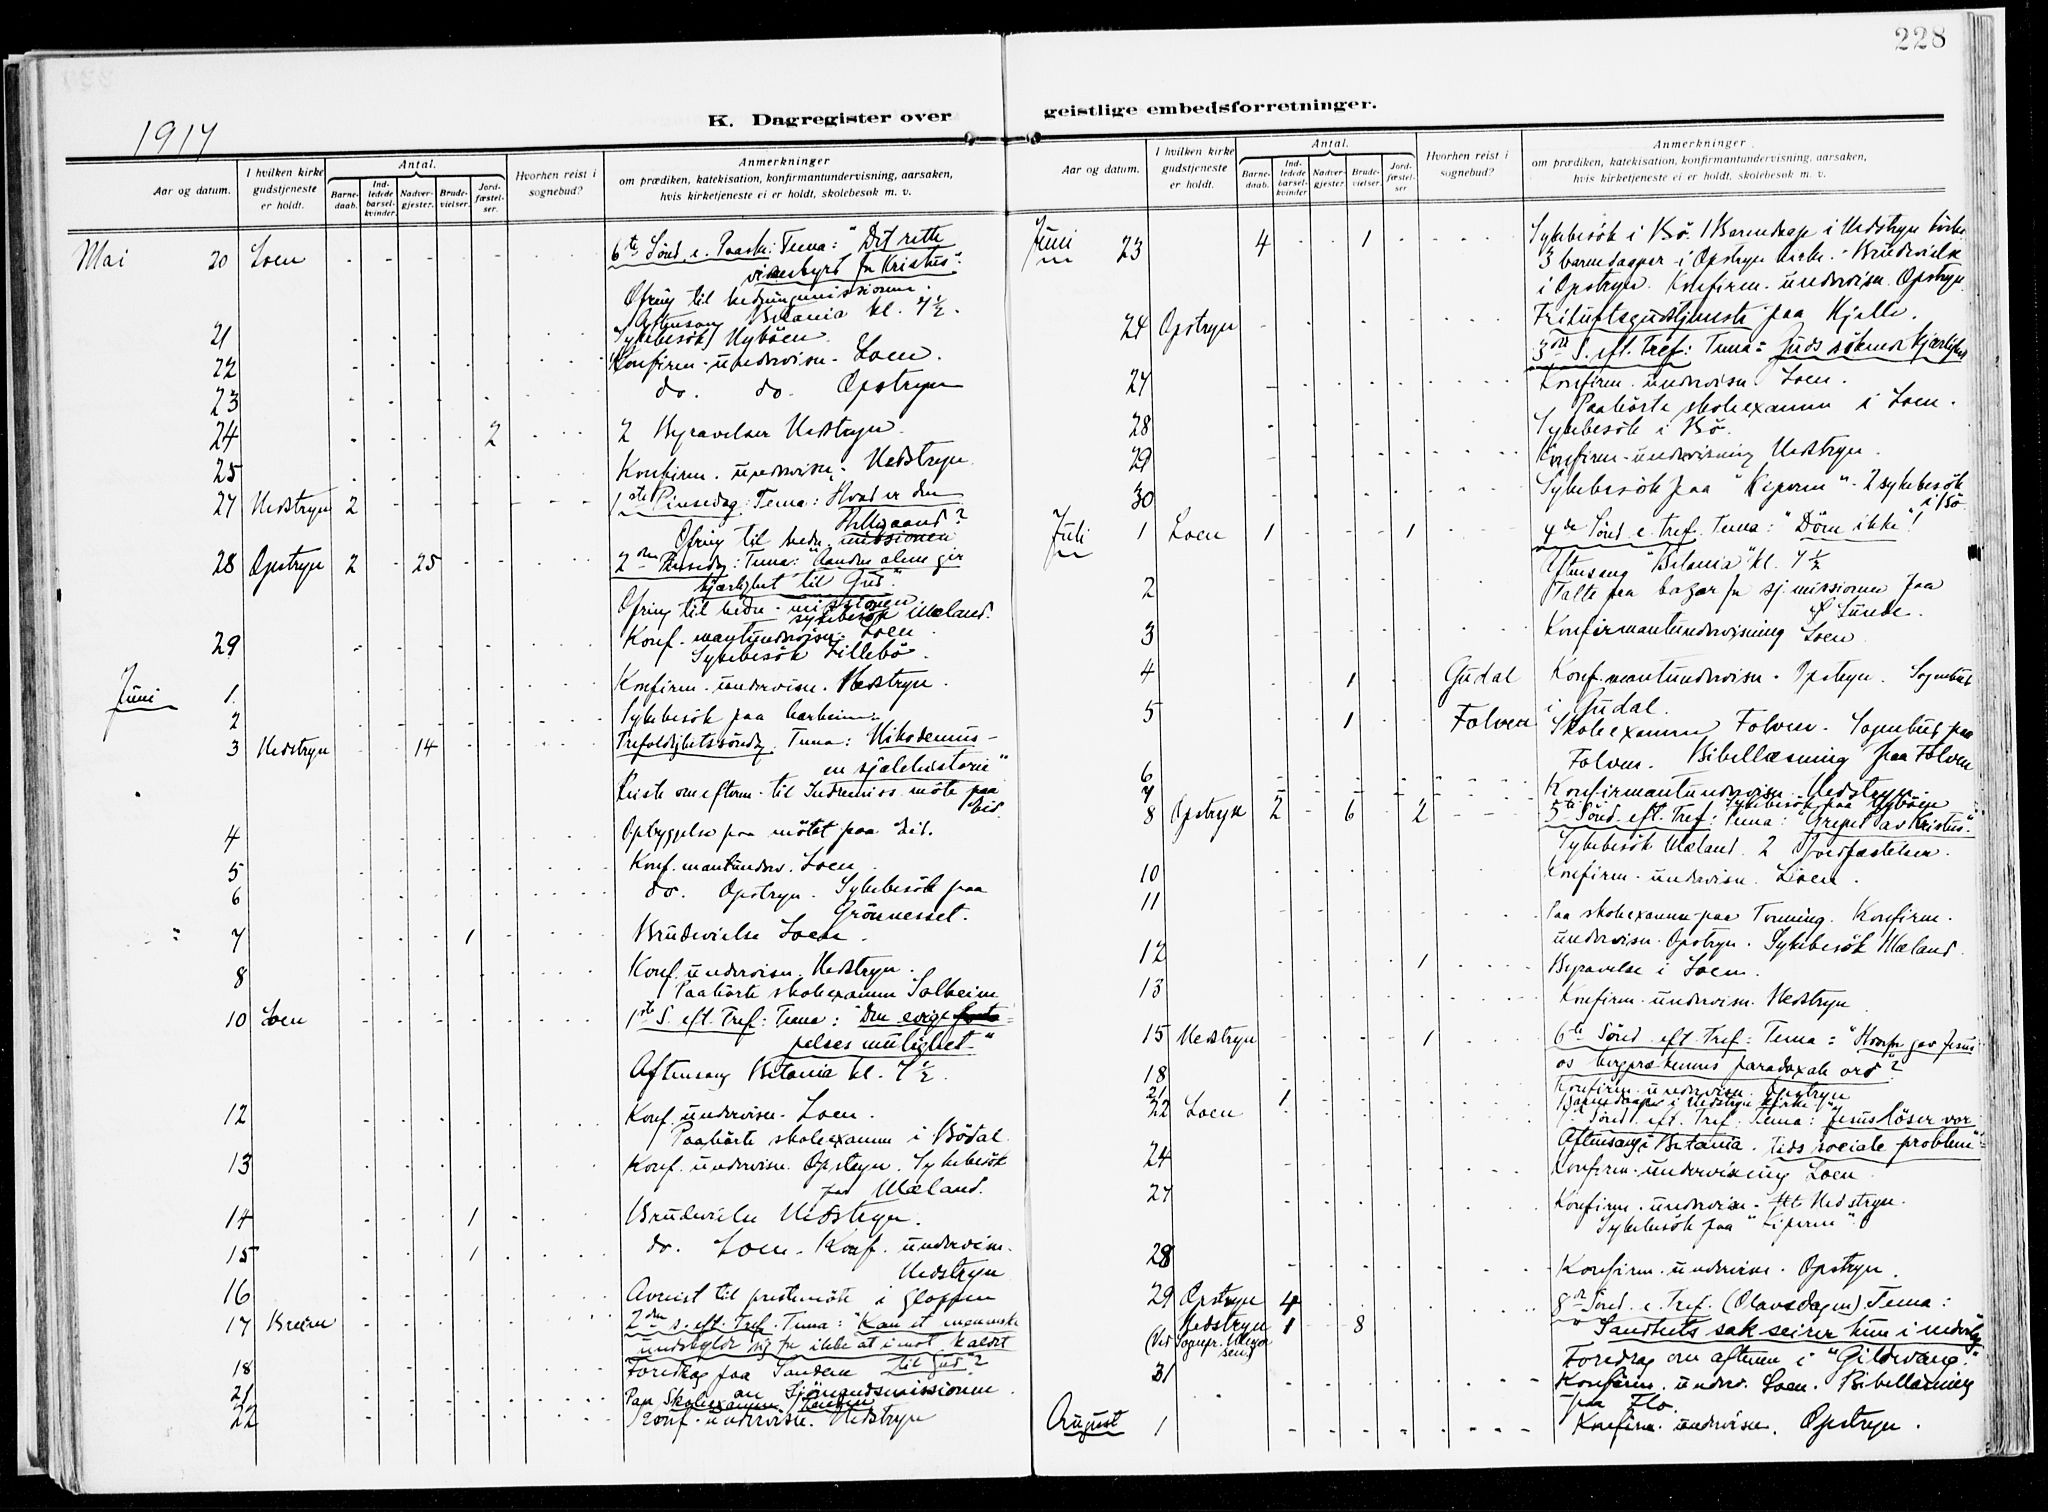 228
K. Dagregister over geistlige embedsforretninger.
1917
Aar og datum.
I hvilken kirke gudstjeneste er holdt.
Antal.
Barne-daab.
Ind-ledede barsel-kvinder.
Nadver-gjester.
Brude-vielser.
Jord-fæstel-ser.
Hvorhen reist i sognebud?
Anmerkninger
om prædiken, katekisation, konfirmantundervisning, aarsaken,
hvis kirketjeneste ei er holdt, skolebesøk m. v.
Mai 20 Loen 6te Sönd. e. Paask: Tema: "Det rette
vidnesbyrd for Kristus".
Ofring til hedningemissionen.
Aftensang Betania kl. 7½.
21 Sykebesök Nybøen
22 Konfirm-undervisn. Loen.
23 do. do. Opstryn
24 2 2 Begravelser Nedstryn.
25 Konfirm. undervisn. Nedstryn
27 Nedstryn 2 1ste Pinsedag: Tema: Hvad er den
Helligaand?
Ofring til hedn. missionen
28 Opstryn 2 25 2den Pinsedag: Tema: "Aanden alene gir
kjærlighet til Gud".
Ofring til hedn-missionen
sykebesök Mæland.
29 Konf.mantundervisn. Loen.
Sykebesök Lillebö.
Juni 1. Konfirm. undervisn. Nedstryn.
2 Sykebesök paa
3 Nedstryn 14 Trefoldighetssöndag. Tema: Nikodemus -
en sjælehistorie"
Reiste om efterm. til Indremiss. möte paa
Eid.
4 Opbyggelse paa mötet paa Eid.
5 Konf.mantunderv. Loen
6 do. Opstryn. Sykebesök paa
Grönnesset.
7 1 Brudevielse Loen.
8 Konf. undervisn. Nedstryn.
Paahörte skoleexamen Solheim
10 Loen 1ste S. eft. Tref: Tema: "Den evige
mulighet"
Aftensang Betania kl. 7½.
12 Konf. undervisn. Loen.
Paahörte skoleexamen i Bödal.
13 Konf. undervisn. Opstryn. Sykebesök
paa Mæland.
14 1 Brudevielse Nedstryn.
15 1 do. Loen. Konf. undervisn.
Nedstryn
16 Avreist til prestemöte i Gloppen
17 Breim 2den s. eft. Tref. Tema: "Kan et menneske
undskylde sig for ikke at i mot kaldet
til Gud"?
18 Foredrag paa Sandene
om Sjömandsmissionen.
21 Paa Skoleexamen
22 Konf. undervisn. Nedstryn
Aar og datum.
I hvilken kirke gudstjeneste er holdt.
Antal.
Barne-daab.
Ind-ledede barsel-kvinder
Nadver-gjester.
Brude-vielser.
Jord-fæstel-ser.
Hvorhen reist i sognebud?
Anmerkninger
om prædiken, katekisation, konfirmantundervisning, aarsaken,
hvis kirketjeneste ei er holdt, skolebesøk m. v.
Juni 23 4 1 Sykebesök i Bö. 1 Barnedaap i Nedstryn kirke.
3 barnedaaper i Opstryn kirke. - Brudevielse
i Opstryn. Konfirm. undervisn. Opstryn
24 Opstryn Friluftsgudstjeneste paa Hjelle.
3die S. eft. Tref: Tema: Guds sökende kjærlighet
27 Konfirm. undervisn. Loen.
Paahörte skoleexamen i Loen.
28 Sykebesök i Bö.
29 Konfirm-undervisning Nedstryn.
30 Sykebesök paa "Kiperen" - 2 sykebesök
i Bö
Juli 1 Loen 1 1 4de Sönd e. Tref. Tema: "Döm ikke"!
Aftensang "Betania" kl. 7½
2 Talte paa basar for sj. missionen paa
Sunde.
3 Konfirmantundervisning Loen
4 1 Gudal Konf.mantundervisn. Opstryn. Sognebud
i Gudal.
5 1 Folven Skoleexamen Folven. Sognebud paa
Folven. Bibellæsning paa Folven
6
7 Konfirmantundervisn. Nedstryn.
Sykebesök paa Nybøen
8 Opstryn 2 6 2 5te Sönd. eft. Tref: Tema: "Grepet av Kristus".
Sykebesök Mæland. 2 Jordfæstelser.
10 Konfirm. undervisn. Loen.
11 Paa skoleexamen paa Tonning. Konfirm.
undervisn. Opstryn. Sykebesök Mæland.
12 1 Begravelse i Loen.
13 Konfirm-undervisn. Nedstryn
15 Nedstryn 1 6te Sönd. eft. Tref: Tema: "Hvorfor gav Jesus
os bergprækenens paradoxale ord"?
18 Konfirm. undervisn. Opstryn
21 1 Barnedaaper i Nedstryn kirke
22 Loen 7de Sönd. eft. Tref. Tema: "Jesus löser vor
tids sociale problem".
Aftensang i Betania.
24 Konfirm-undervisning Loen
27 Konfirm. undervisn. Nedstryn.
Sykebesök paa "Kiperen".
28 Konfirm. undervisn. Opstryn.
29 Opstryn 4 8de Sönd. e. Tref. (Olavsdagen) Tema:
Nedstryn 1 8 "Sandhets sak seirer
(Ved Sognepr. 
Foredrag om aftenen i "Gildevang".
31 Konfirm. underv. Loen. Bibellæsning
paa Flo.
August 1 Konfirm. undervisn. Opstryn.